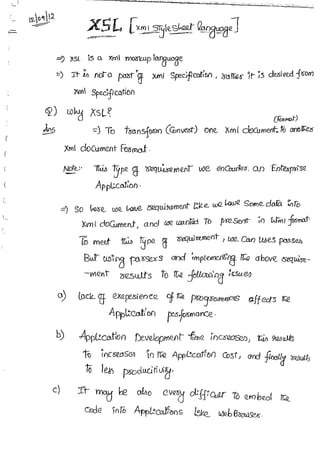 12/09/12
XSL [xml style sheet language]
=> XSL is a xml markup language
=> It is not a part of xml Specification, rather it is desived from
xml Specification
Q) why XSL?
(Format)
Ans => To transform (Convert) one xml document to another
xml document Format.
Note:- This type of requirement we encounter an Enterprise
Application.
=> So here we have requirement like we have Some data into
xml document, and we wanted To present in html format
To meet this type of requirement, we Can uses parsers
But using parsers and implementing the above require-
-ment results to the following issues
a) lack of experience of the programmers affects the
Application performance.
b) Application Development time increases, this results
to increases in the Application Cost, and finally results
to less producitivity.
c) It may be also every difficult To embed the
code into Applications like web Browser.